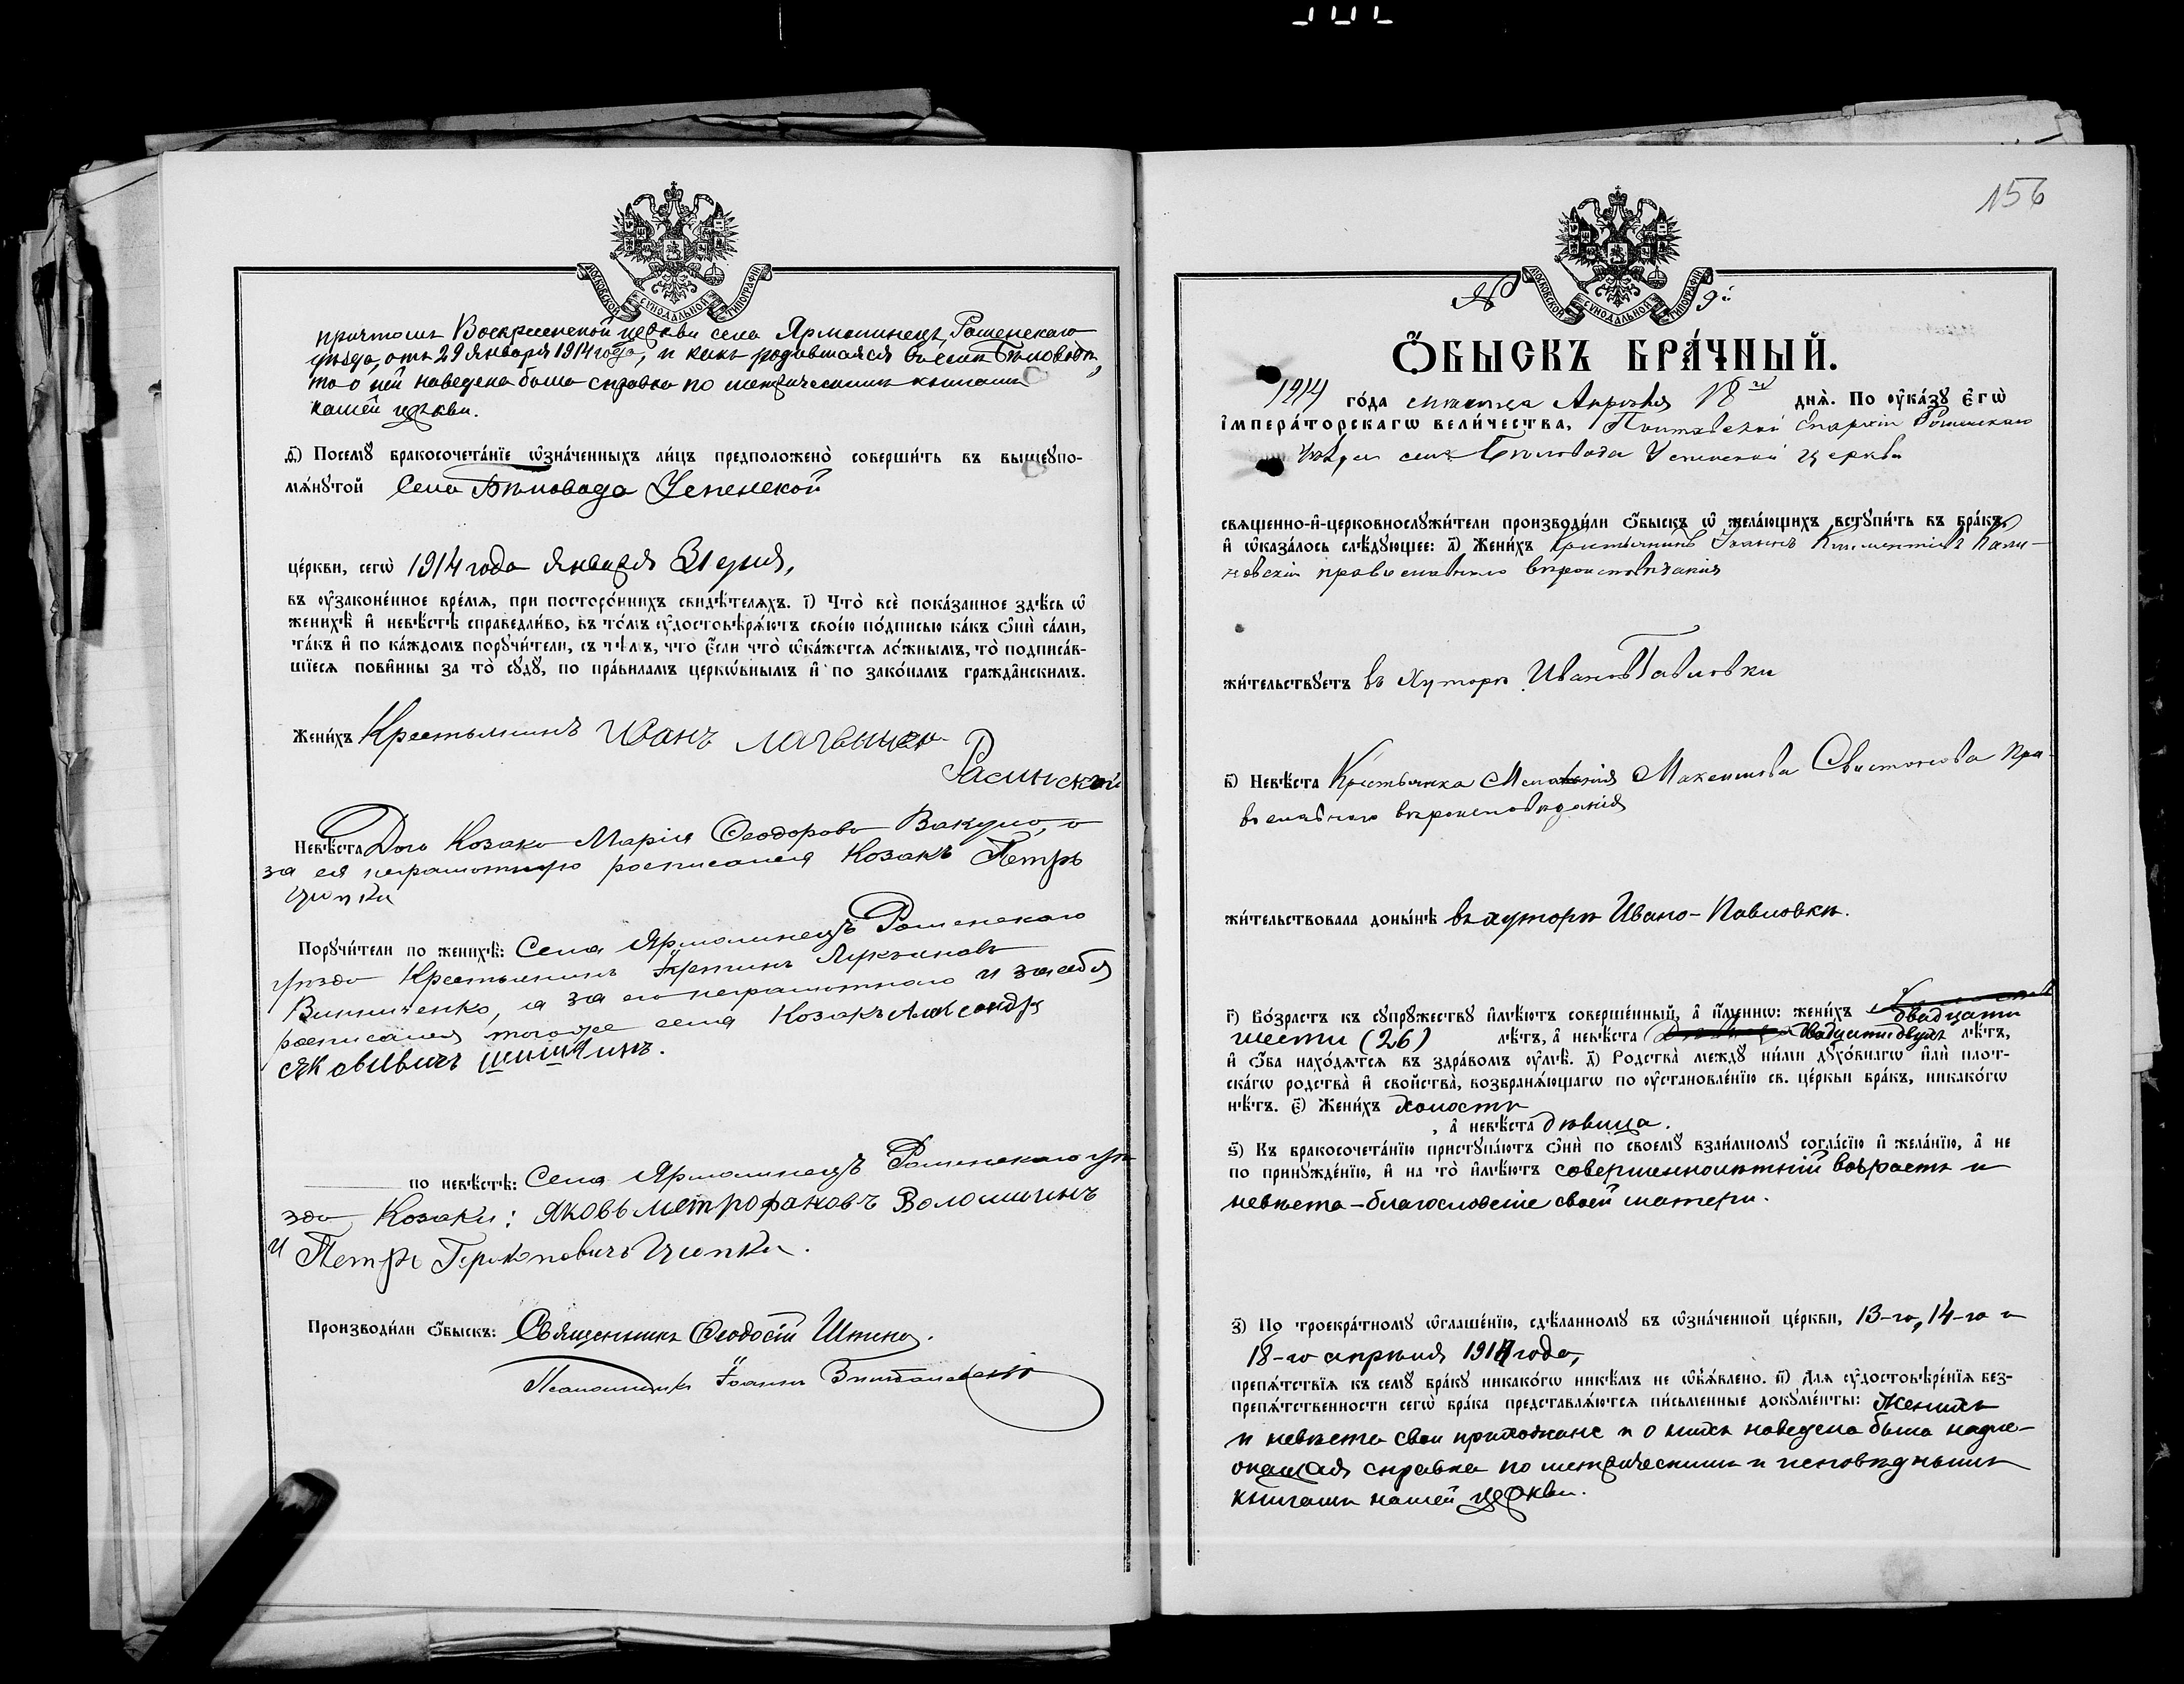 МОСКОВСКОЙ СУНОДАЛЬНОЙ ТИПОГРАФІИ
причтомъ Воскресенской церкви села Ярмолинецъ, Роменскаго
уѣзда, отъ 29 января 1914 года, и какъ родившаяся въ селѣ Бѣловодѣ,
то о ней наведена была справка по метрическимъ книгамъ
нашей церкви.
д҃і) Посемꙋ̀ бракосочета́нїе ѡ҆зна́ченныхъ ли́цъ предположено̀ соверши́ть въ вышеꙋпо-
мѧ́нꙋтой Села Бѣловода Успенской
це́ркви, сегѡ̀ 1914 года января 31 дня,
въ ᲂу҆законе́нное вре́мѧ, при посторо́ннихъ свидѣ́телѧхъ. і҃) Что̀ всѐ пока́занное здѣ́сь ѡ҆
женихѣ̀ и҆ невѣ́стѣ справедли́во, въ то́мъ ᲂу҆достовѣрѧ́ютъ свое́ю по́дписью ка́къ ѻ҆нѝ са́ми,
та́къ и҆ по ка́ждомъ порꙋчи́тели, съ тѣ́мъ, что є҆́сли что̀ ѡ҆ка́жетсѧ ло́жнымъ, то̀ подписа́в-
шїесѧ пови́нны за то̀ сꙋдꙋ̀, по пра́виламъ церкѡ́внымъ и҆ по зако́намъ гражда̂нскимъ.
Жени́хъ Крестьянинъ Иванъ
Расинской
Невѣ́ста Дочь Козака Марія Ѳеодорова Вакула, а
за ея неграмотную росписался Козакъ Петръ
Цюпка
Порꙋчи́тели по женихѣ̀: Села Ярмолинецъ Роменскаго
уѣзда Крестьянинъ Лукіановъ
Винниченко, а за его неграмотнаго и за себя
росписался тогоже села Козакъ Александръ
Яковлевичъ Шишкинъ.
по невѣ́стѣ: Села Ярмолинецъ Роменскаго уѣ-
зда Козаки: Яковъ Метрофановъ Волошинъ
и Петръ Цюпка.
Производи́ли ѻ҆́быскъ: Священникъ Ѳеодосій
Псаломщикъ Іоаннъ
156
МОСКОВСКОЙ СУНОДАЛЬНОЙ ТИПОГРАФІИ
№ 9й
Ѻ҆́БЫСКЪ БРА́ЧНЫЙ.
1914 го́да мѣсяца Апрѣля 18го днѧ̀. По ᲂу҆ка́зꙋ Є҆гѡ̀
І҆мпера́торскагѡ вели́чества, Полтавской Епархіи Роменскаго
уѣзда села Бѣловода Успенской церкви
свѧще́нно-и҆-церковнослꙋжи́тели производи́ли ѻ҆́быскъ ѡ҆ жела́ющихъ встꙋпи́ть въ бра́къ,
и҆ ѡ҆каза́лось слѣ́дꙋющее: а҃) Жени́хъ Крестьянинъ Іоаннъ Климентіевъ Кали-
новскій православнаго вѣроисповѣданія
жи́тельствꙋетъ въ хуторѣ ИваноПавловки
в҃) Невѣ́ста Крестьянка Меланія Максимова Свистонова пра-
вославнаго вѣроисповѣданія
жи́тельствовала доны́нѣ въ хуторѣ Ивано-Павловкѣ.
г҃) Во́зрастъ къ сꙋпрꙋ́жествꙋ и҆мѣ́ютъ соверше́нный, а҆ и҆́меннѡ: жени́хъ двадцати
шести (26) лѣ́тъ, а҆ невѣ́ста двадцати двухъ лѣ́тъ,
и҆ ѻ҆́ба нахо́дѧтсѧ въ здра́вомъ ᲂу҆мѣ̀. д҃) Родства̀ междꙋ̀ ни́ми дꙋхо́внагѡ и҆лѝ плот-
ска́гѡ родства̀ и҆ сво́йства, возбранѧ́ющагѡ по ᲂу҆становле́нїю св. це́ркви бра́къ, никако́гѡ
нѣ́тъ. є҃) Жени́хъ холостъ
, а҆ невѣ́ста дѣвица.
ѕ҃) Къ бракосочета́нїю пристꙋпа́ютъ ѻ҆нѝ по своемꙋ̀ взаи́мномꙋ согла́сїю и҆ жела́нїю, а҆ не
по принꙋжде́нїю, и҆ на то̀ и҆мѣ́ютъ совершеннолѣтній возрастъ и
невѣста – благословеніе своей матери.
з҃) По троекра́тномꙋ ѡ҆глаше́нїю, сдѣ́ланномꙋ въ ѡ҆зна́ченной це́ркви, 13-го, 14-го и
18-го апрѣля 1914 года,
препѧ́тствїѧ къ семꙋ̀ бра́кꙋ никако́гѡ никѣ́мъ не ѡ҆б̾ѧ́влено. и҃) Длѧ ᲂу҆достовѣре́нїѧ без-
препѧ́тственности сегѡ̀ бра́ка представлѧ́ютсѧ пи́сьменные докꙋме́нты: Женихъ
и невѣста свои прихожане и о нихъ наведена была надле-
жащая справка по метрическимъ и исповѣднымъ
книгамъ нашей церкви.